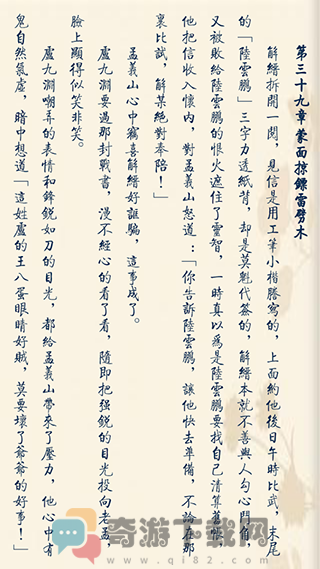 第三十九章 蒙面掠鏢雷劈木
解縉拆開一閱，見信是用工筆小楷謄寫的，上面約他後日午時比武，末尾
的「陸雲鵬」三字力透紙背，却是莫魁代簽的，解縉本就不善與人勾心鬥角，
又被敗給陸雲鵬的恨火遮住了靈智，一時真以爲是陸雲鵬要找自己清算舊
他把信收入懷內，對孟義山怒道：「你告訴陸雲鵬，讓他快去準備，不論在那
裏比試，解某絕對奉陪！」
孟義山心中竊喜解縉好誆騙，這事成了。
盧九淵要過那封戰書，漫不經心的看了看，隨即把强銳的目光投向老孟，
臉上顯得似笑非笑。
盧九淵嘲弄的表情和鋒銳如刀的目光，都給孟義山帶來了壓力，他心中有
鬼自然氣虛，暗中想道「這姓盧的王八蛋眼睛好賊，莫要壞了爷爷的好事！」
奇游下载网
www.qi82.com